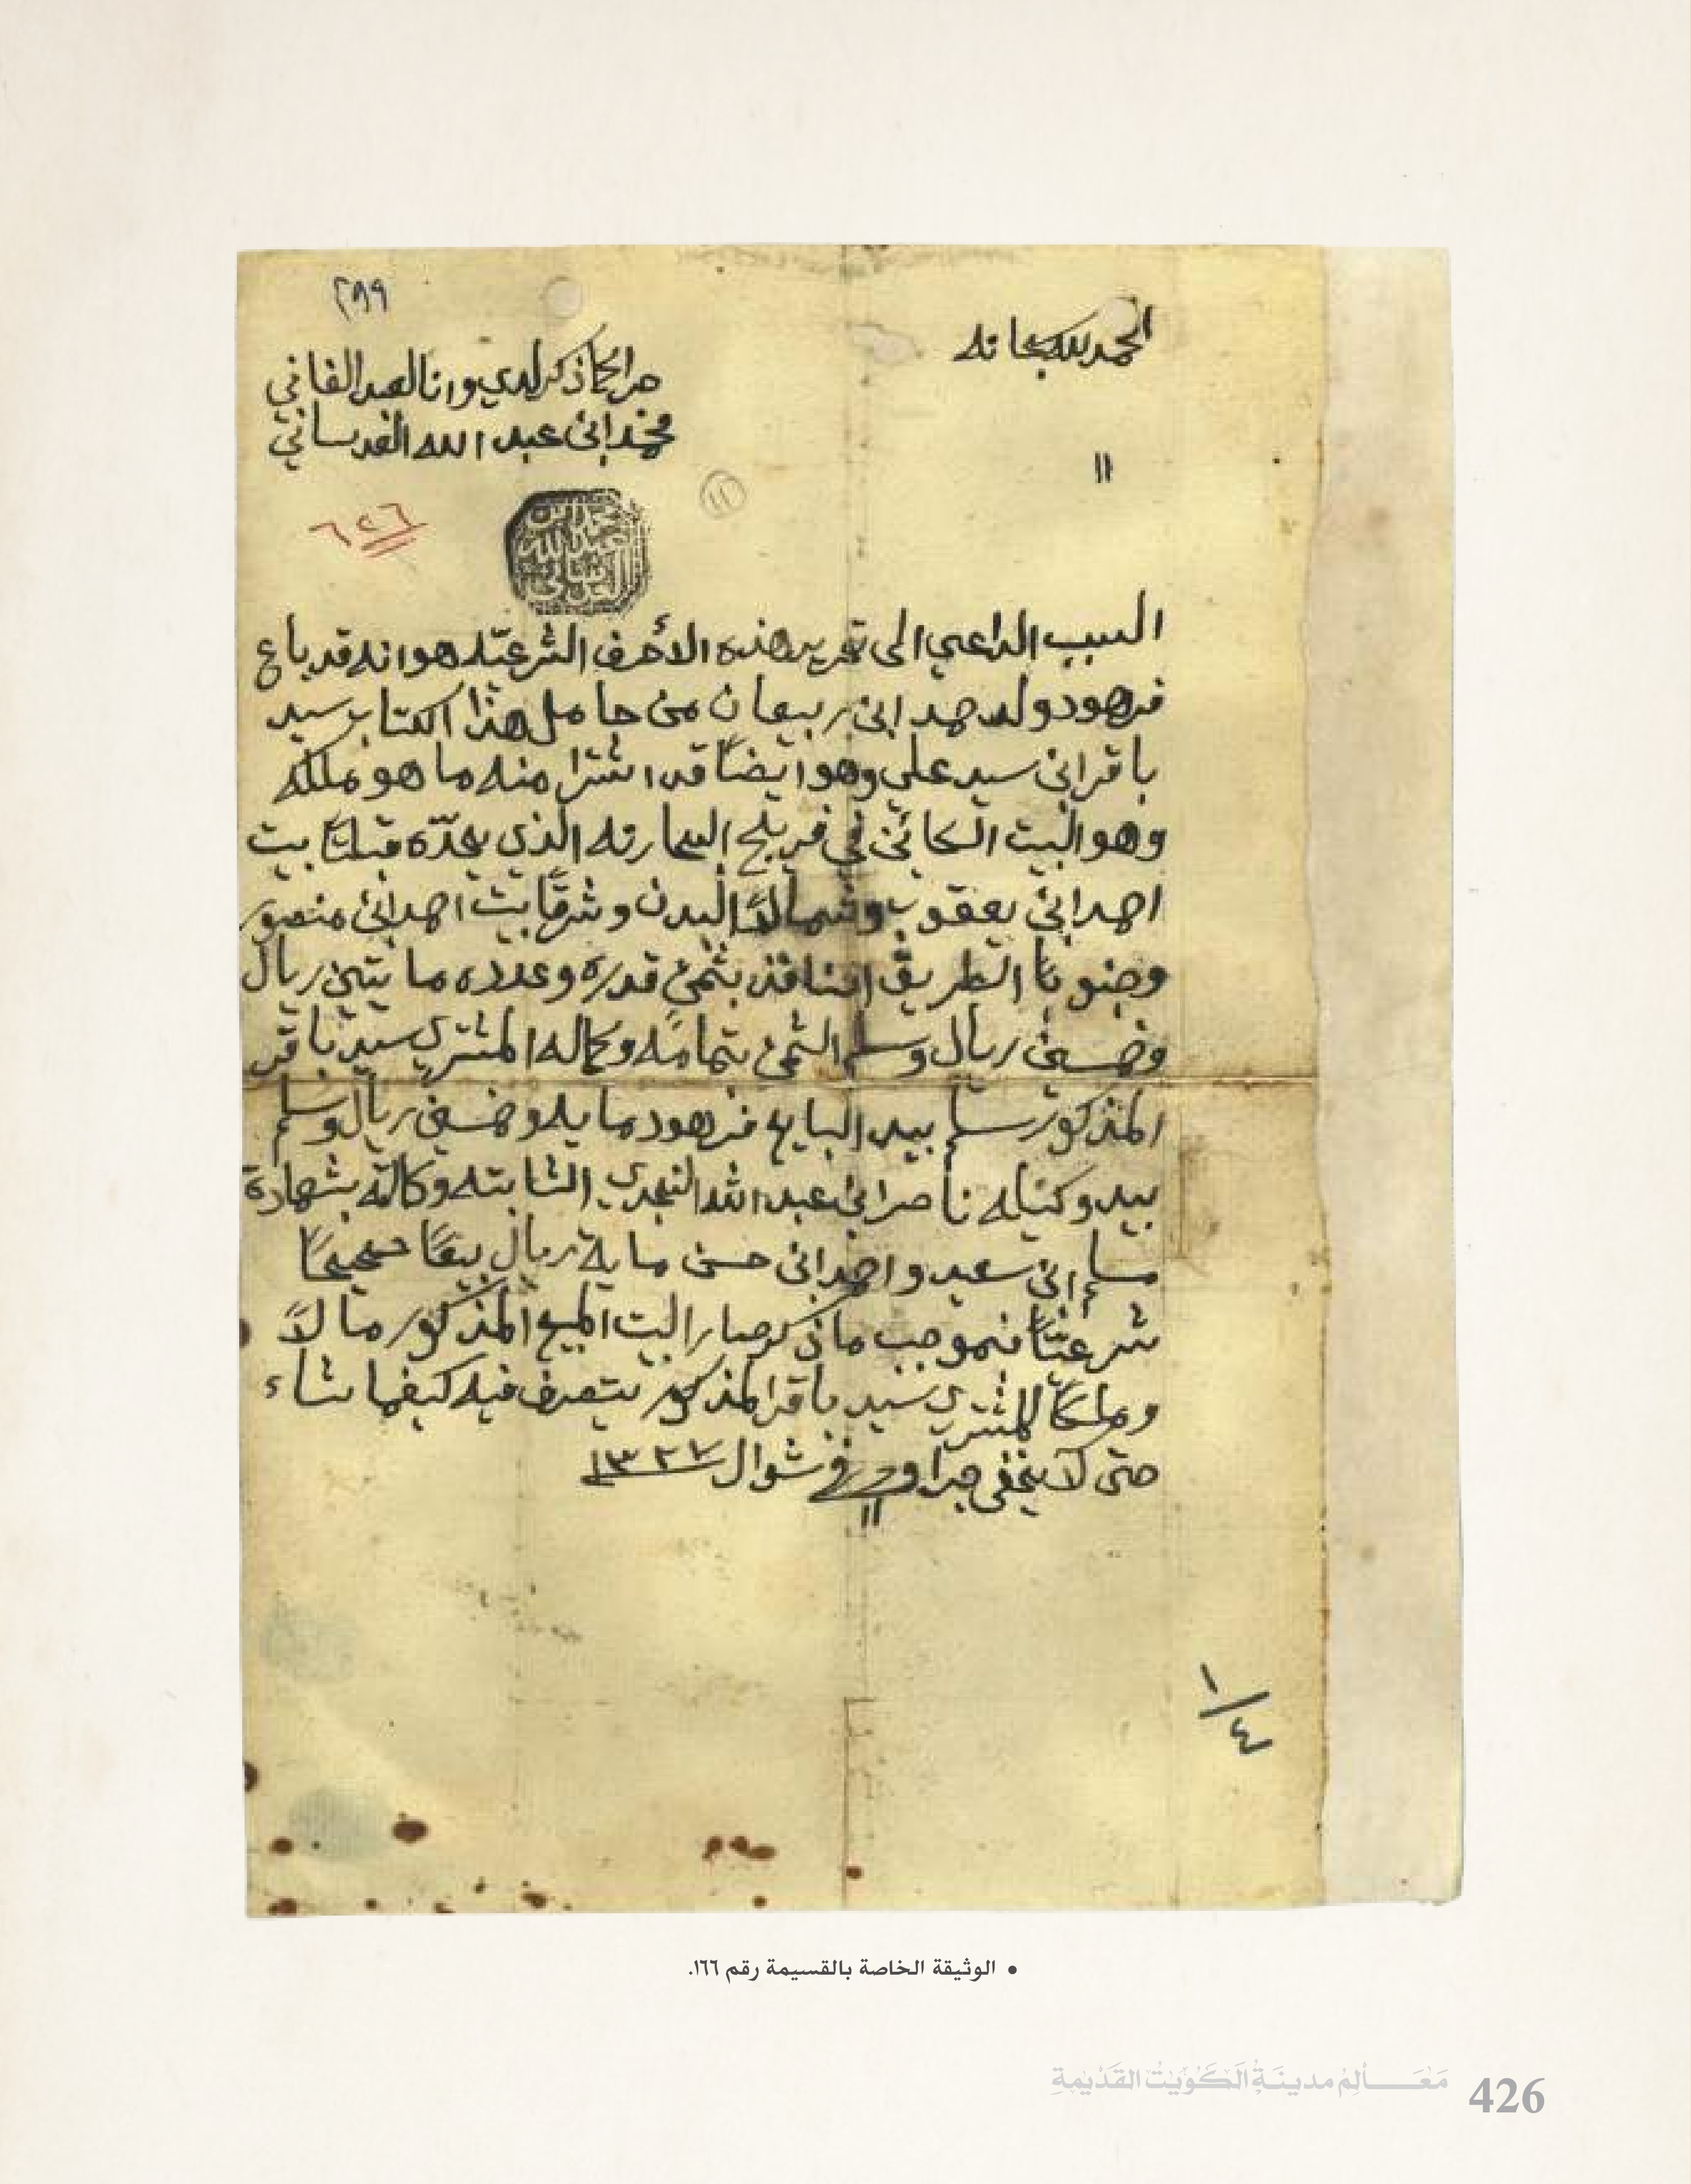 الحمد لله سبحانه
٢٩٩
جرا كما ذكر لدي وانا العبد الفاني
محمد ابن عبد الله العدساني
١١
٦٢٦
السبب الداعي الى تحرير هذه الاحرف الشرعيّه هو انه قد باع
فرهود ولد حمد ابن ربيعان من حامل هذا الكتاب سيد
باقر ابن سيد علي وهو ايضًا قد اشترا منه ما هو ملكه
وهو البيت الكائن في فريج السمارته الذي يحدّه قبلتًا بيت
احمد ابن يعقوب وشمالاً البدن وشرقًا بيت احمد ابن منصور
وجنوبًا الطريق النافذ بثمن قدره وعدده مايتين ريال
وخمسين ريال وسلم الثمن بتمامه وكماله المشتري سيد باقر
المذكور سلم بيد البايع فرهود مايه وخمسين ريال وسلم
بيد وكيله ناصر ابن عبد الله النجدي الثابته وكالته بشهادة
مسلم ابن سعيد واحمد ابن حسن ماية ريال بيعًا صحيحًا
شرعيًّا فبموجب ما ذكر صار البيت المبيع المذكور مالاً
وملكًا للمشتري سيد باقر المذكور يتصرف فيه كيفما شاء
حتى لا يخفى جرا وحرر في ١١ شوال ١٣٢٧
١/٤
• الوثيقة الخاصة بالقسيمة رقم ١٦٦.
مَعَالِمُ مدينَةِ الكُوَيْت القَدْيمةِ
426